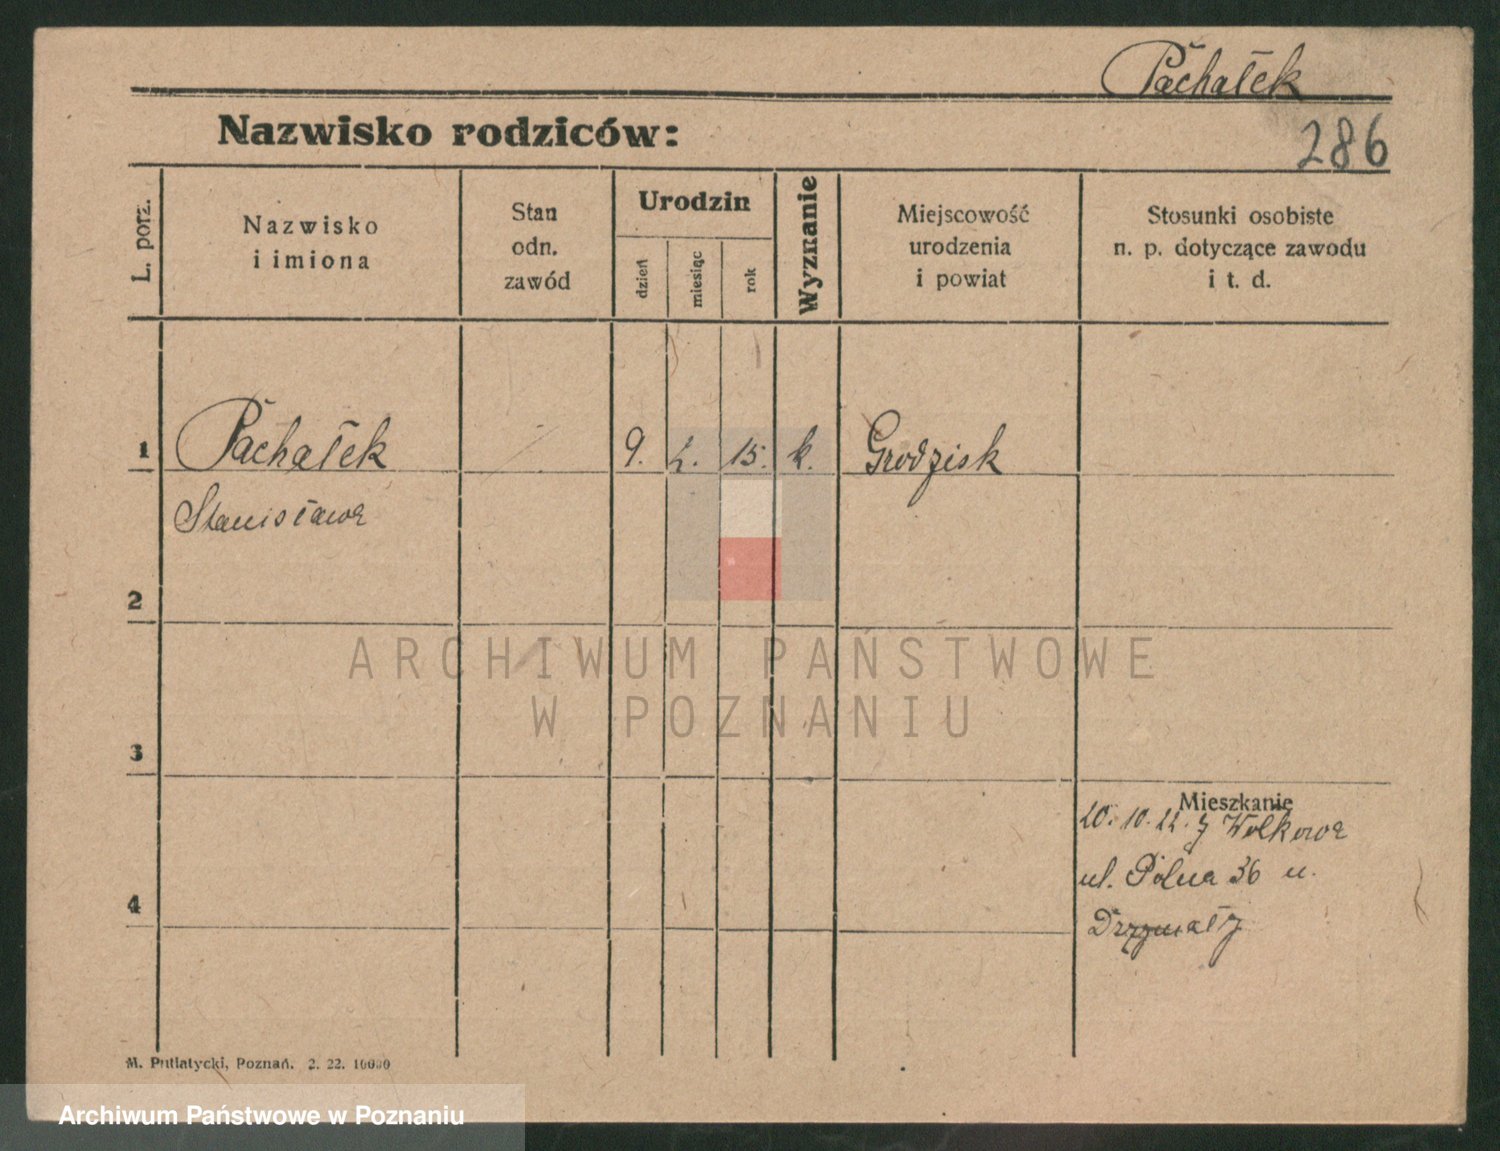 Pachałek
Nazwisko rodziców:
286
L. porz.
Nazwisko
i imiona
Stan
odn.
zawód
Urodzin
dzień
miesiąc
rok
Wyznanie
Miejscowość
urodzenia
i powiat
Stosunki osobiste
n. p. dotyczące zawodu
i t. d.
1
Pachałek
9. 2. 15. k. Grodzisk
Stanisława
2
ARCHIWUM PAŃSTWOWE
W POZNANIU
3
Mieszkanie
20. 10. 22. z Wolkowa
ul. Polna 36 u.
4
Drzymały
M. Putiatycki, Poznań. 2. 22. 10000
Archiwum Państwowe w Poznaniu